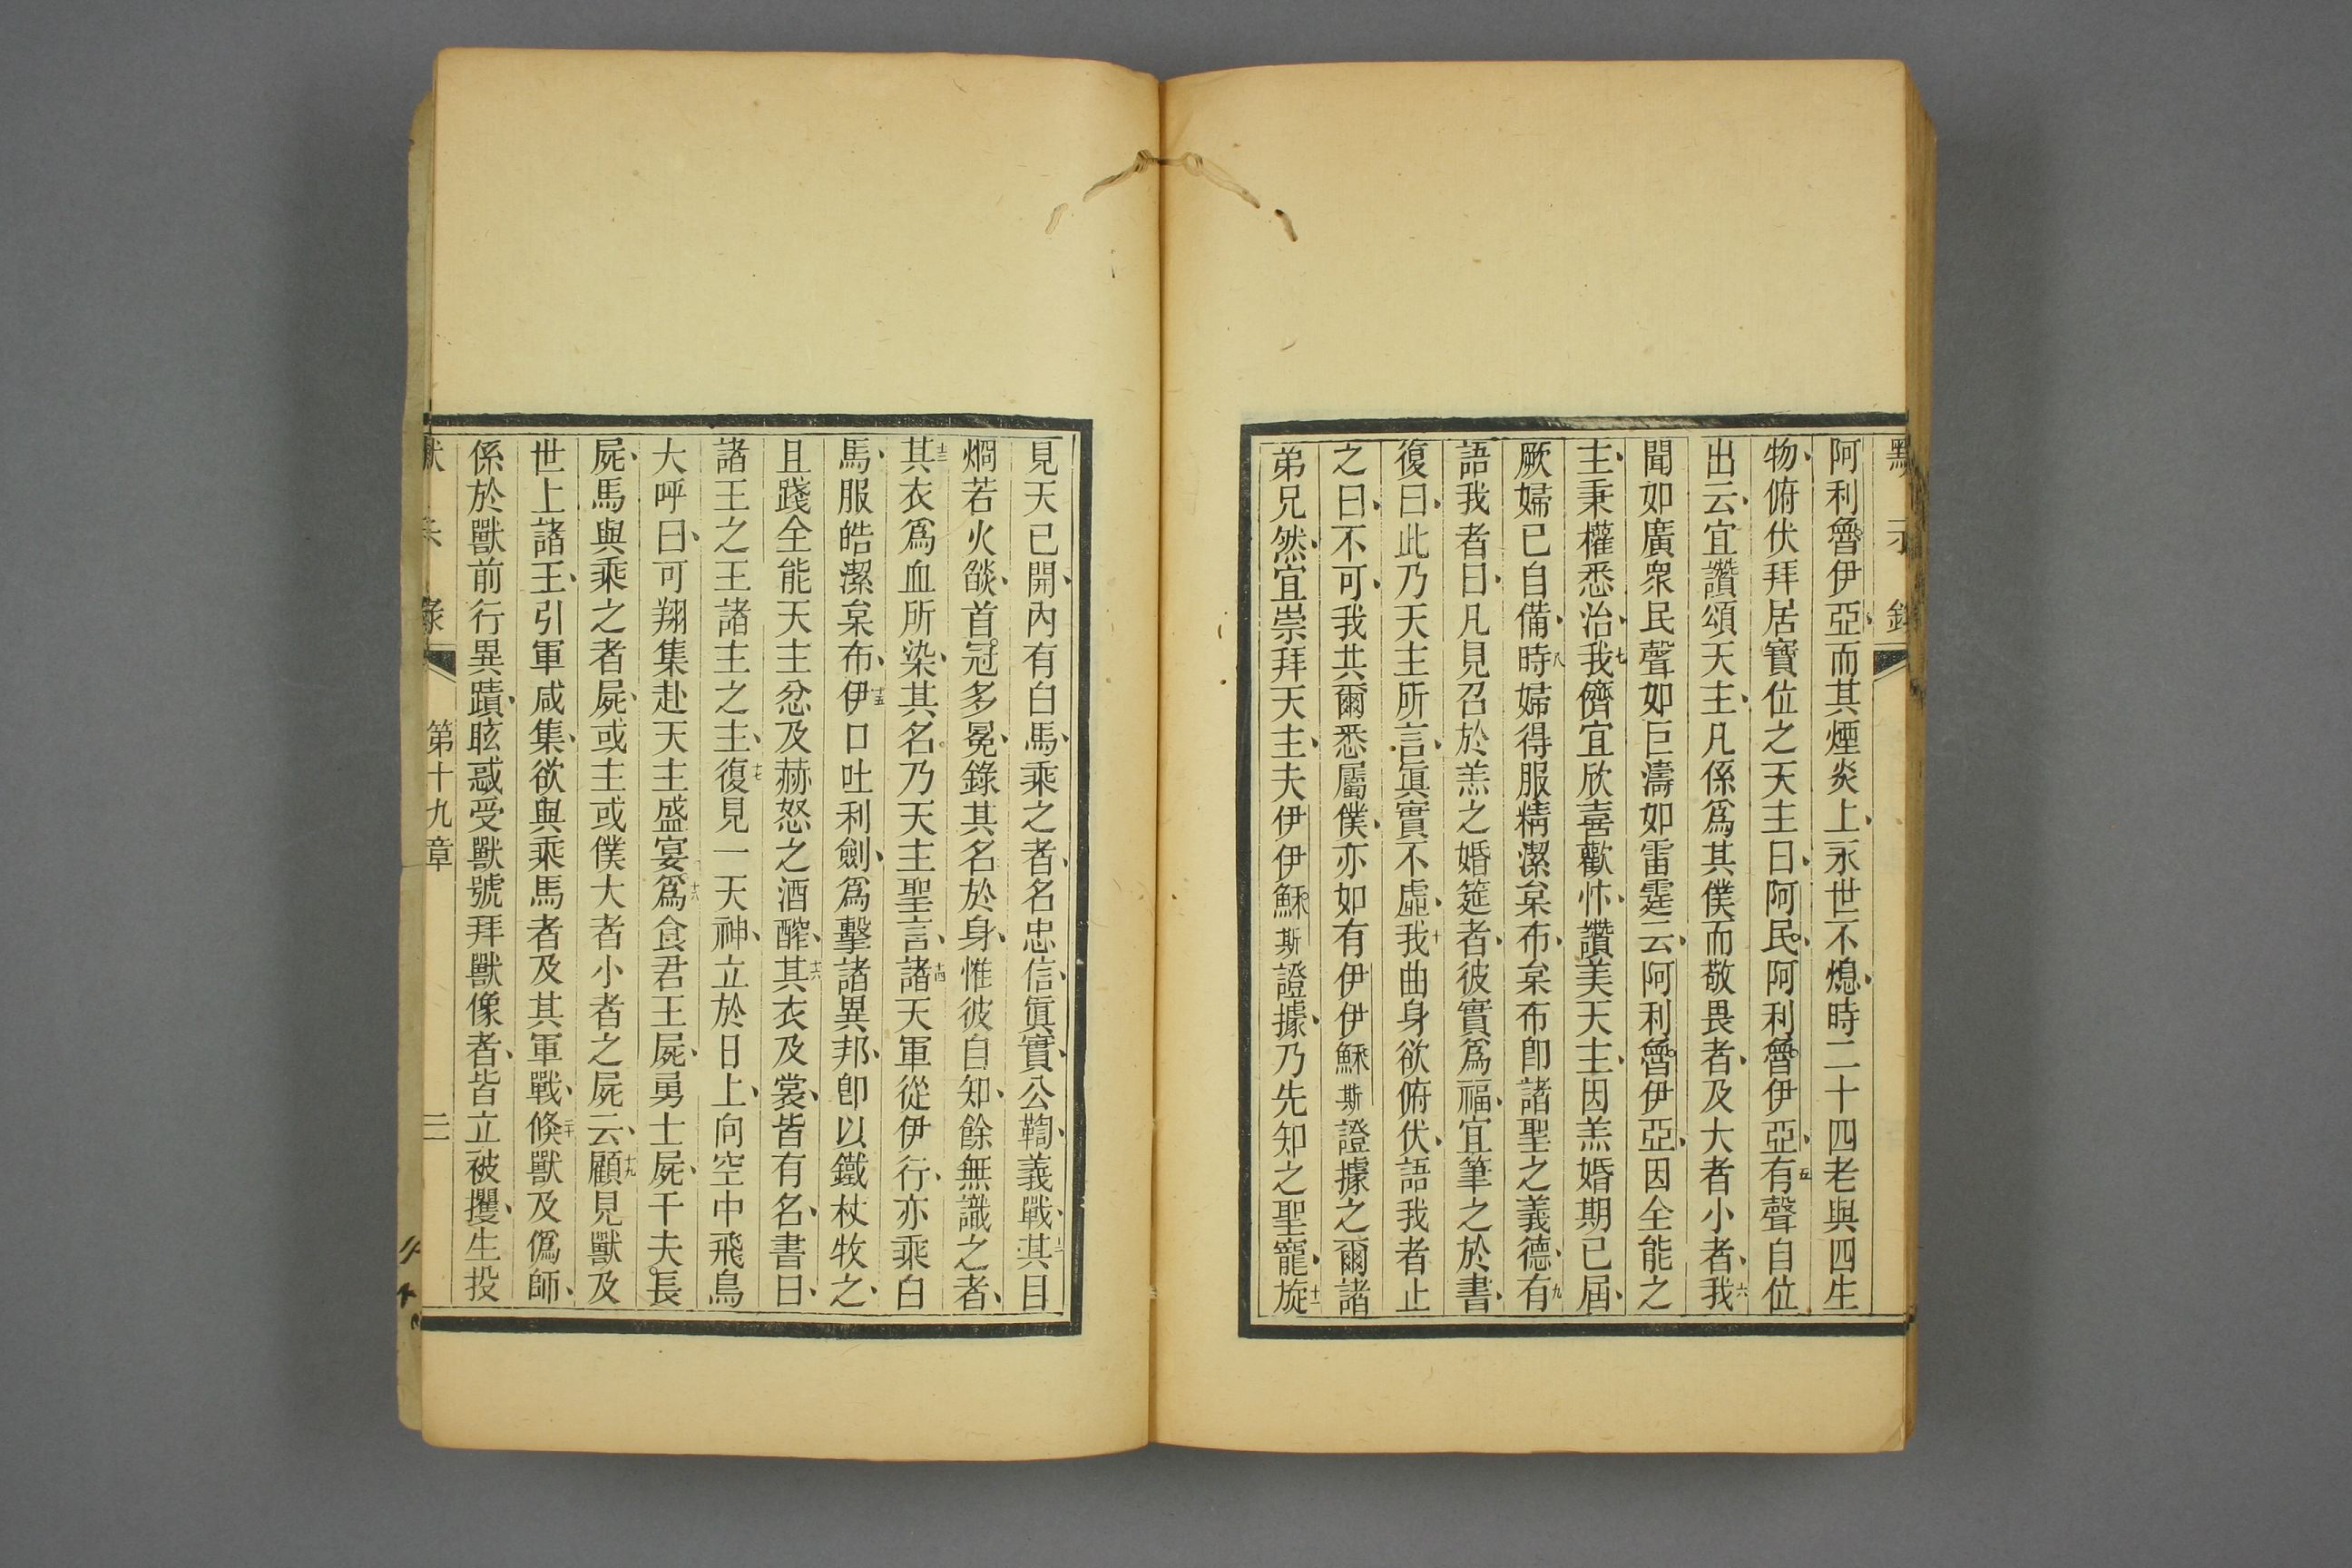 默示錄
阿利魯伊亞、而其煙炎上、永世不熄、時二十四老與四生
物、俯伏拜居寶位之天主曰、阿民、阿利魯伊亞、五有聲自位
出云、宜讚頌天主、凡係爲其僕而敬畏者、及大者小者、六我
聞如廣衆民聲如巨濤如雷霆云、阿利魯伊亞、因全能之
主、秉權悉治、七我儕宜欣喜歡忭、讚美天主、因羔婚期已屆、
厥婦已自備、八時婦得服精潔枲布、枲布卽諸聖之義德、九有
語我者曰、凡見召於羔之婚筵者、彼實爲福、宜筆之於書、
復曰、此乃天主所言、眞實不虛、十我曲身欲俯伏、語我者止
之曰、不可、我共爾悉屬僕、亦如有伊伊穌斯證據之爾諸
弟兄然、宜崇拜天主、夫伊伊穌斯證據、乃先知之聖寵、十一旋
見天已開、內有白馬、乘之者、名忠信、眞實、公鞫、義戰、十二其目
烱若火燄、首冠多冕、錄其名於身、惟彼自知、餘無識之者、
十三其衣爲血所染、其名乃天主聖言、十四諸天軍從伊行、亦乘白
馬、服皓潔枲布、十五伊口吐利劍、爲擊諸異邦、卽以鐵杖牧之、
且踐全能天主忿及赫怒之酒醡、十六其衣及裳、皆有名、書曰、
諸王之王諸主之主、十七復見一天神、立於日上、向空中飛鳥
大呼曰、可翔集赴天主盛宴、十八爲食君王屍、勇士屍、千夫長
屍、馬與乘之者屍、或主或僕大者小者之屍云、十九顧見獸及
世上諸王、引軍咸集、欲與乘馬者及其軍戰、二十倏獸及僞師、
係於獸前行異蹟、眩惑受獸號拜獸像者、皆立被攫、生投
第十九章
二